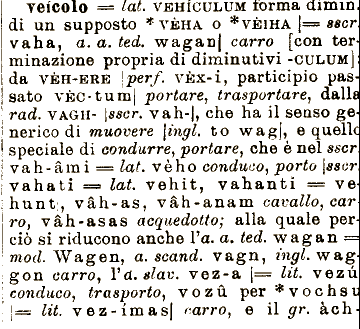 veícolo = lat. VEHÍCULUM forma dimin.
di un supposto *VÈHA o *VÈIHA |= sscr.
vaha, a. a. ted. wagan| carro [con ter-
minazione propria di diminutivi -CULUM]
da VÈH-ERE |perf. VÈX-i, participio pas-
sato VÈC-tum| portare, trasportare, dalla
rad. VAGH- |sscr. vah-|, che ha il senso ge-
nerico di muovere |ingl. to wag|, e quello
speciale di condurre, portare, che è nel sscr.
vah-âmi = lat. vèho conduco, porto |sscr.
vahati = lat. vehit, vahanti = ve-
hunt|, vâh-as, vâh-anam cavallo, car-
ro, vâh-asas acquedotto; alla quale per-
ciò si riducono anche l'a. a. ted. wagan =
mod. Wagen, a. scand. vagn, ingl. wag-
gon carro, l'a. slav. vez-a |= lit. vezú
conduco, trasporto, vozû per *vochsu
|= lit. vez-imas| carro, e il gr. àch-